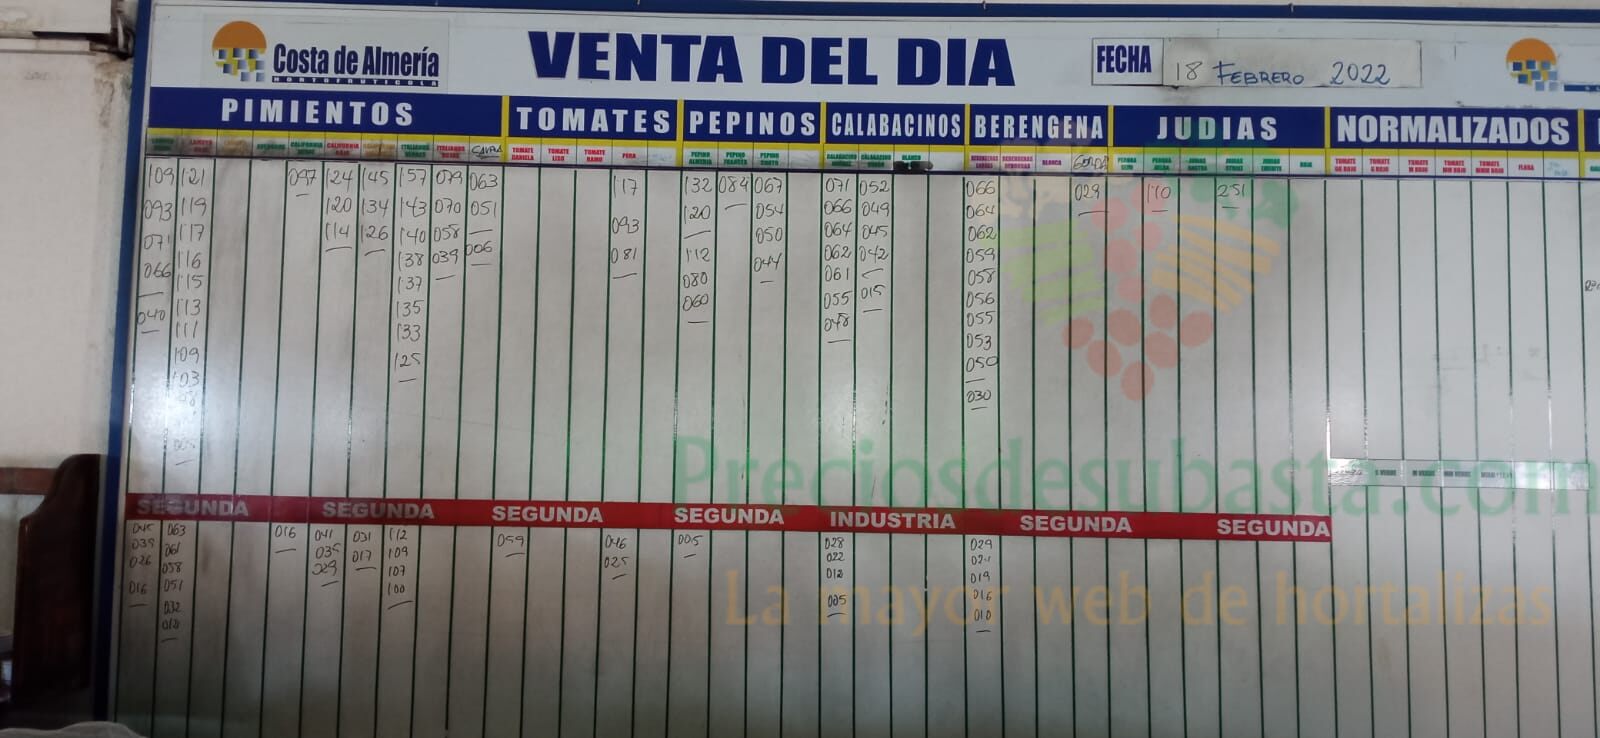 Costa de Almería
HORTOFRUTICOLA
VENTA DEL DIA
FECHA
18 FEBRERO 2022
PIMIENTOS TOMATES PEPINOS CALABACINOS BERENGENA JUDIAS NORMALIZADOS
CALIFORNIA ITALIANO TOMATE DANIELA TOMATE LISO TOMATE RAMO PERA PEPINO ALMERIA PEPINO FRANCES PEPINO CORTO BLANCO BLANCA GORDA
109 121 097 124 145 157 079 063 117 132 084 067 071 052 066 029 110 251
093 119 120 134 143 070 051 093 120 054 066 049 064
071 117 114 126 140 058 006 081 112 050 064 045 062
066 116 138 039 080 044 062 042 059
040 115 137 060 061 015 058
113 135 055 056
111 133 048 055
109 125 053
103 050
030
SEGUNDA SEGUNDA SEGUNDA SEGUNDA INDUSTRIA SEGUNDA SEGUNDA
045 063 016 041 031 112 059 046 005 028 029
039 061 035 017 109 025 022
026 058 029 107 012 019
016 051 100 005 016
032 010
012
Preciosdesubasta.com
La mayor web de hortalizas